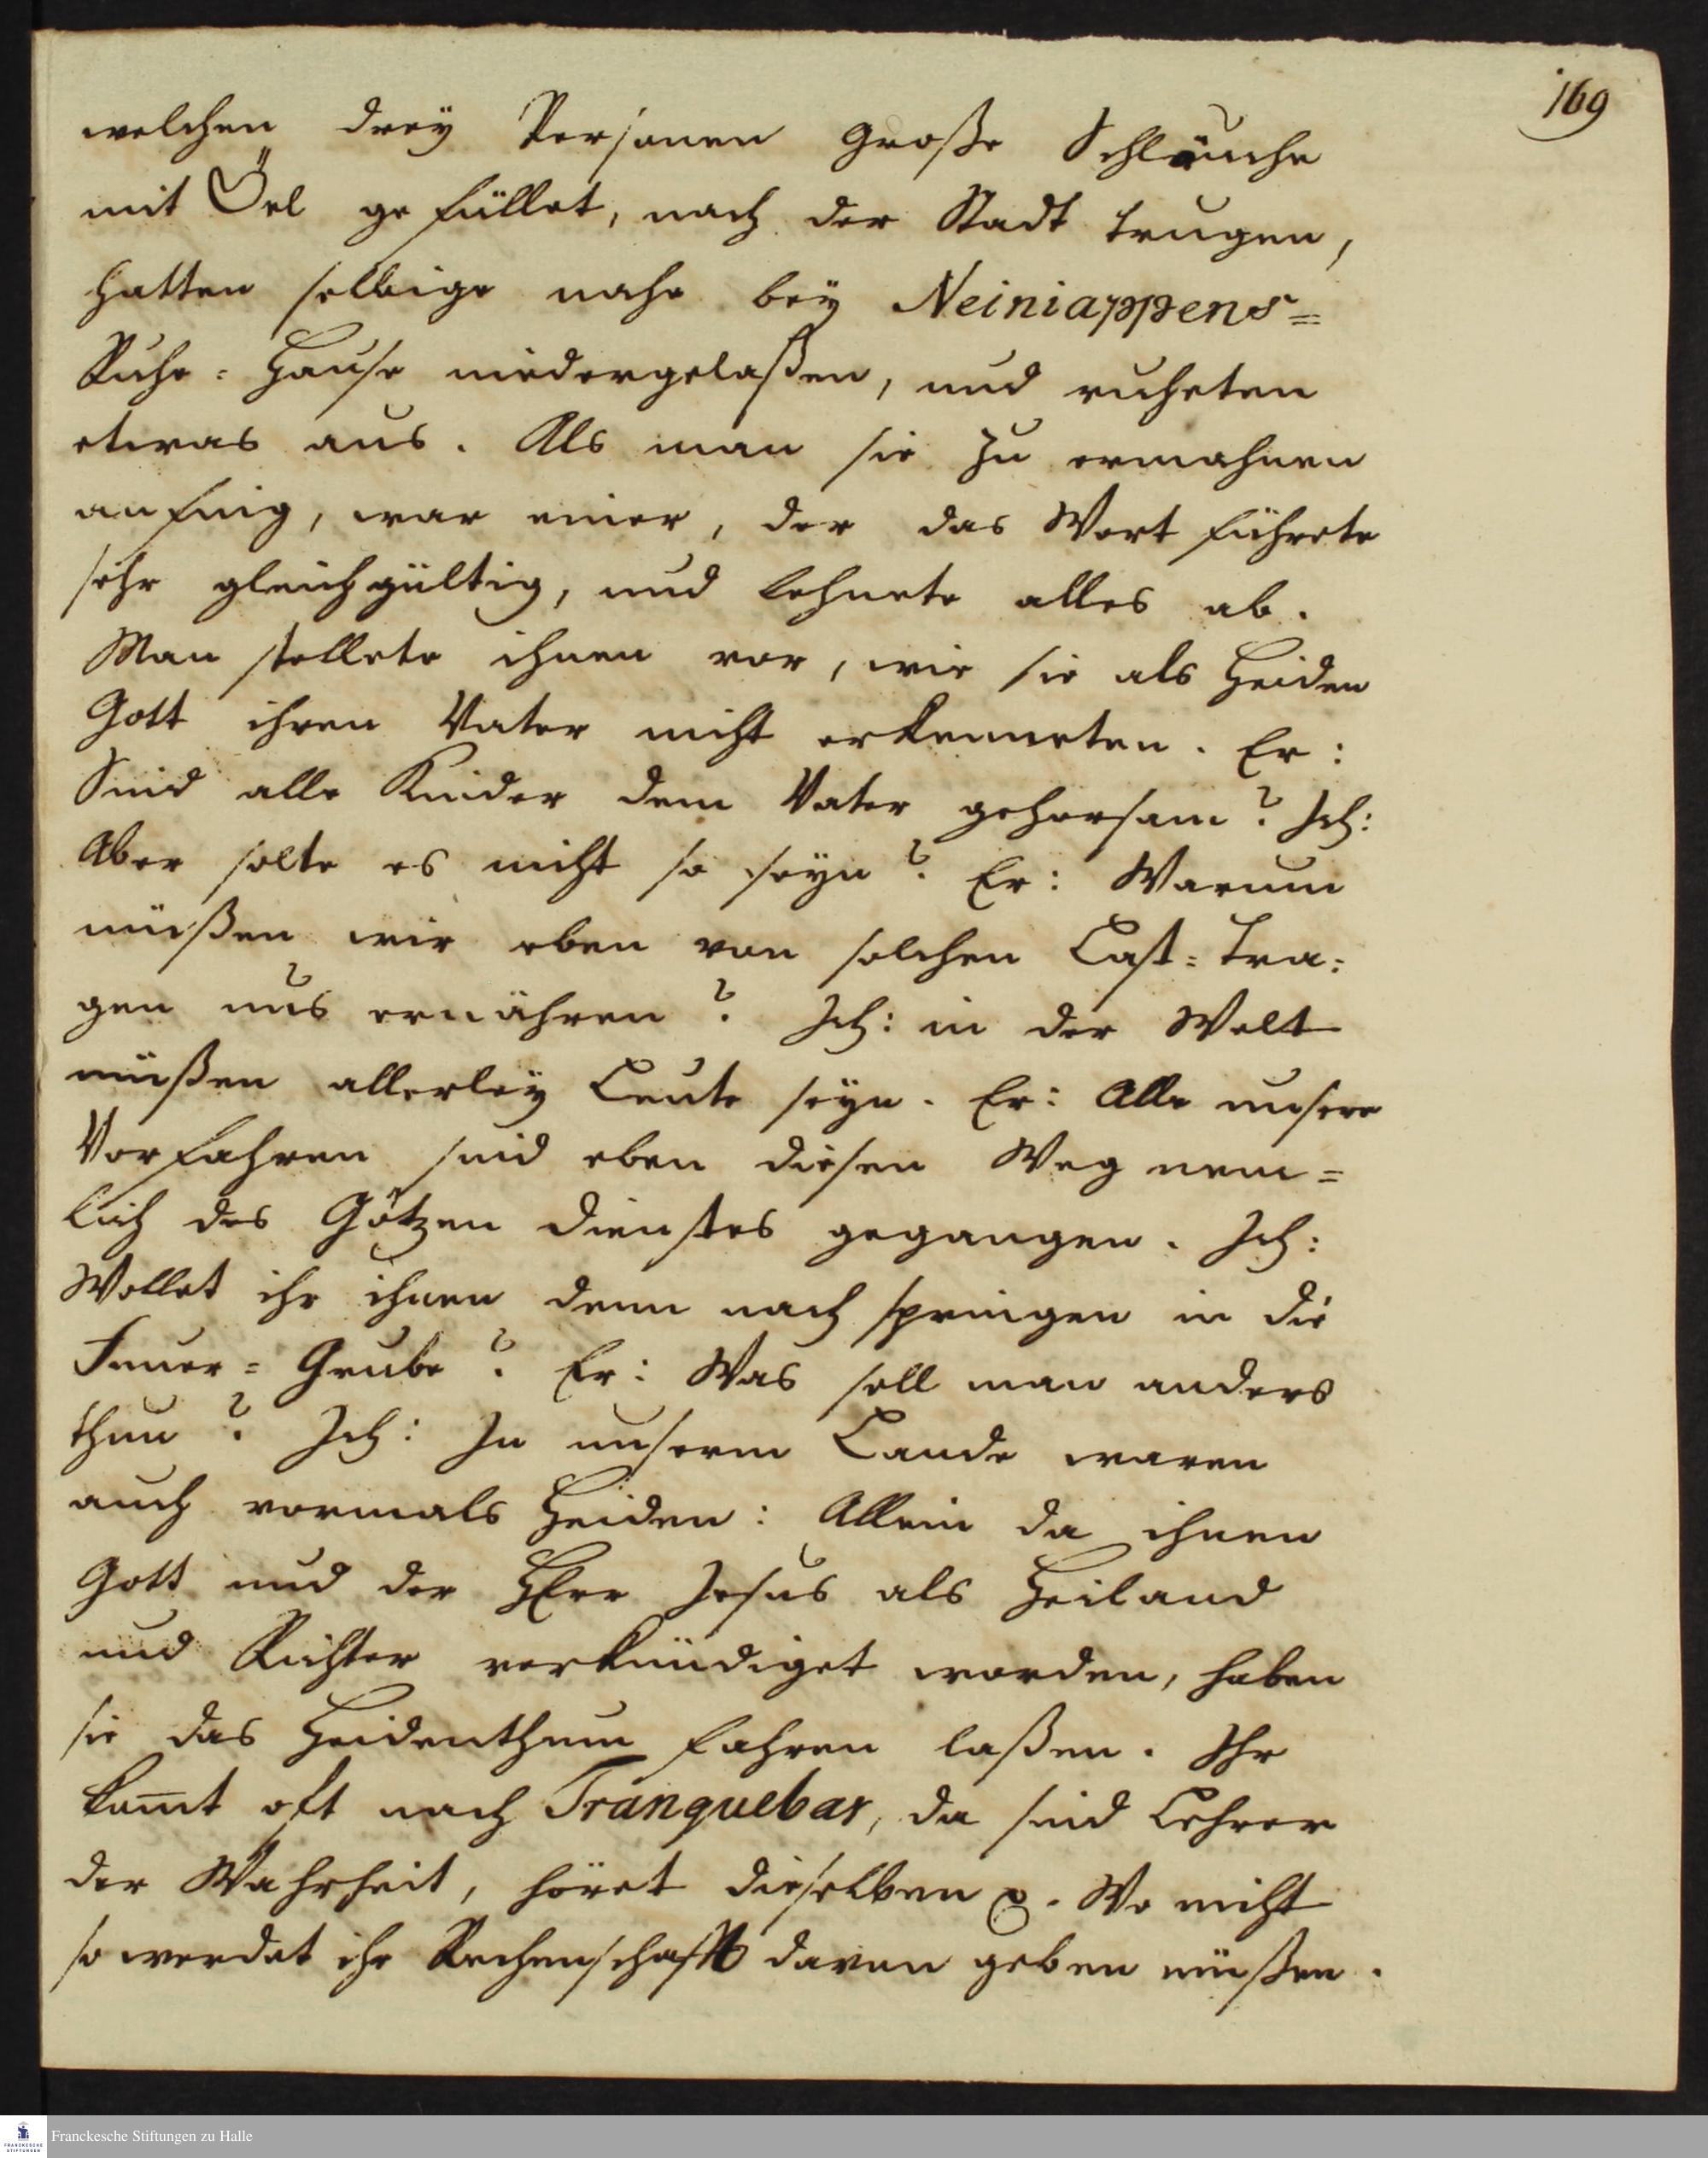 169
welchen drey Personen große Schläuche
mit Öel gefüllet, nach der Stadt trugen,
hatten selbige nahe bey Neiniappens=
Ruhe=Hause niedergelaßen, und ruheten
etwas aus. Als man sie zu ermahnen
anfing, war einer, der das Wort führete
sehr gleichgültig, und lehnete alles ab.
Man stellete ihnen vor, wie sie als Heiden
Gott ihren Vater nicht erkenneten. Er:
Sind alle Kinder dem Vater gehorsam? Ich:
Aber solte es nicht so seyn? Er: Warum
müßen wir eben von solchen Last=tra=
gen uns ernähren? Ich: in der Welt
müßen allerley Leute seyn. Er: Alle unsere
Vorfahren sind eben diesen Weg nem=
lich des Götzen dienstes gegangen. Ich:
Wollet ihr ihnen denn nach springen in die
Feuer=Grube? Er: Was soll man anders
thun? Ich: In unserm Lande waren
auch vormals Heiden: Allein da ihnen
Gott und der HErr Jesus als Heiland
und Richter verkündiget worden, haben
sie das Heidenthum fahren laßen. Ihr
kom̅t oft nach Tranquebar, da sind Lehrer
der Wahrheit, höret dieselben p. Wo nicht
so werdet ihr Rechenschafft davon geben müßen.
FRANCKESCHE STIFTUNGEN
Franckesche Stiftungen zu Halle